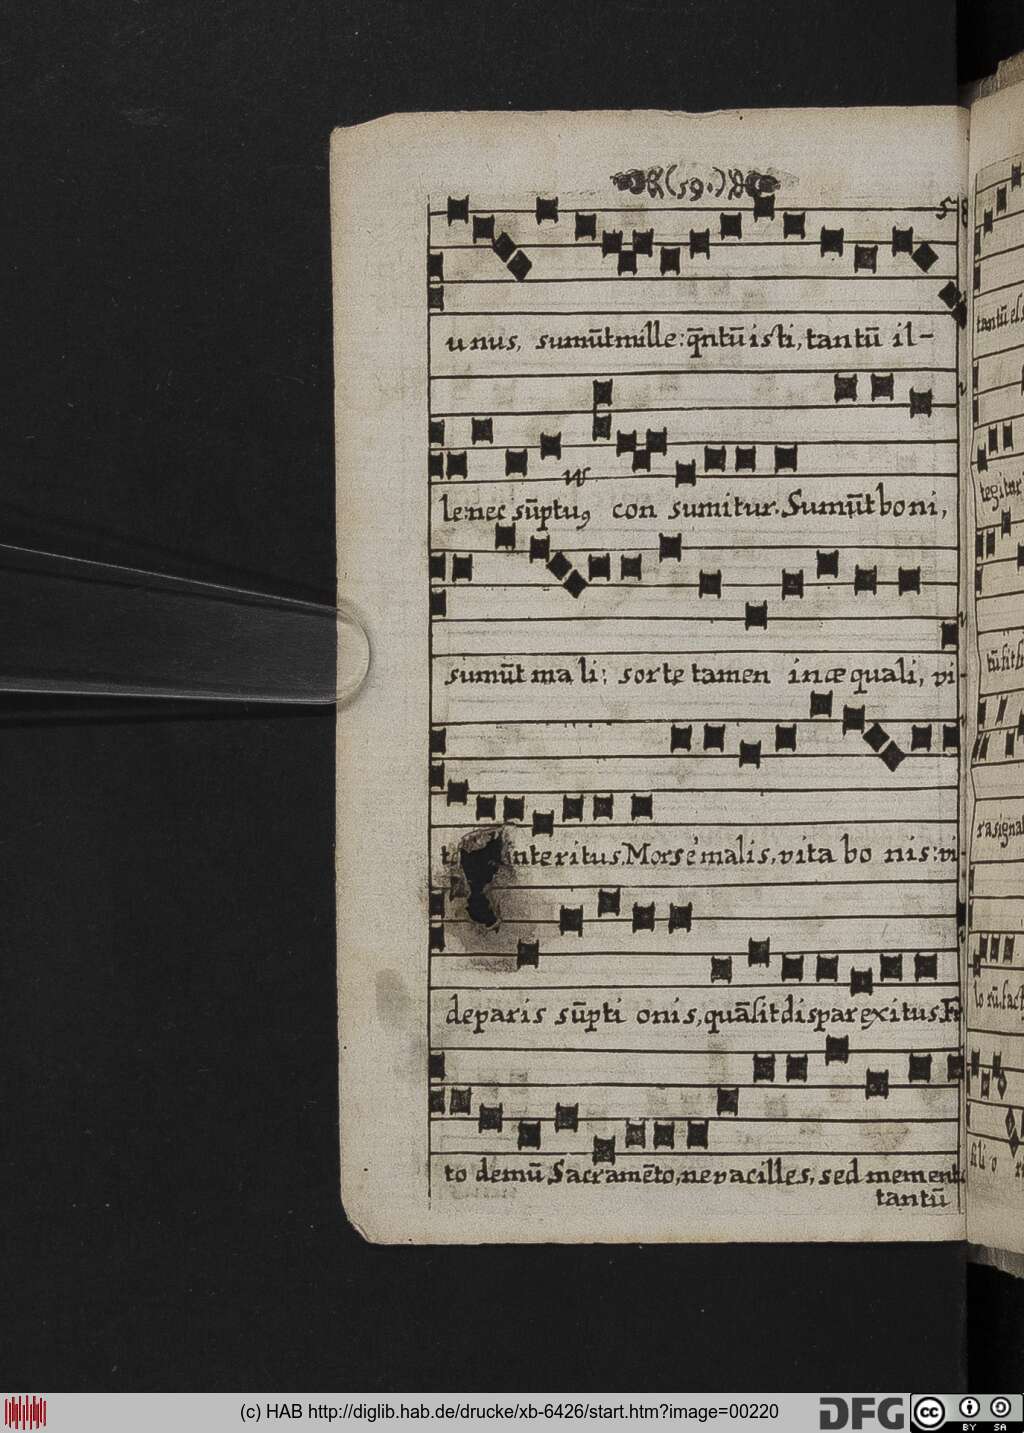 (59.)
58
unus, sumūt mille: q̄ntū isti, tantū il-
le: nec sūptuꝰ con sumitur. Sumūt boni,
sumūt mali: sorte tamen inæquali, vi-
interitus. Mors ē malis, vita bo nis: vi-
de paris sūpti onis, quā sit dispar exitus. Fr
to demū Sacramēto, ne vacilles, sed memento
tantū
tantū
tegitur
rasignat
(c) HAB http://diglib.hab.de/drucke/xb-6426/start.htm?image=00220
DFG
cc
BY SA